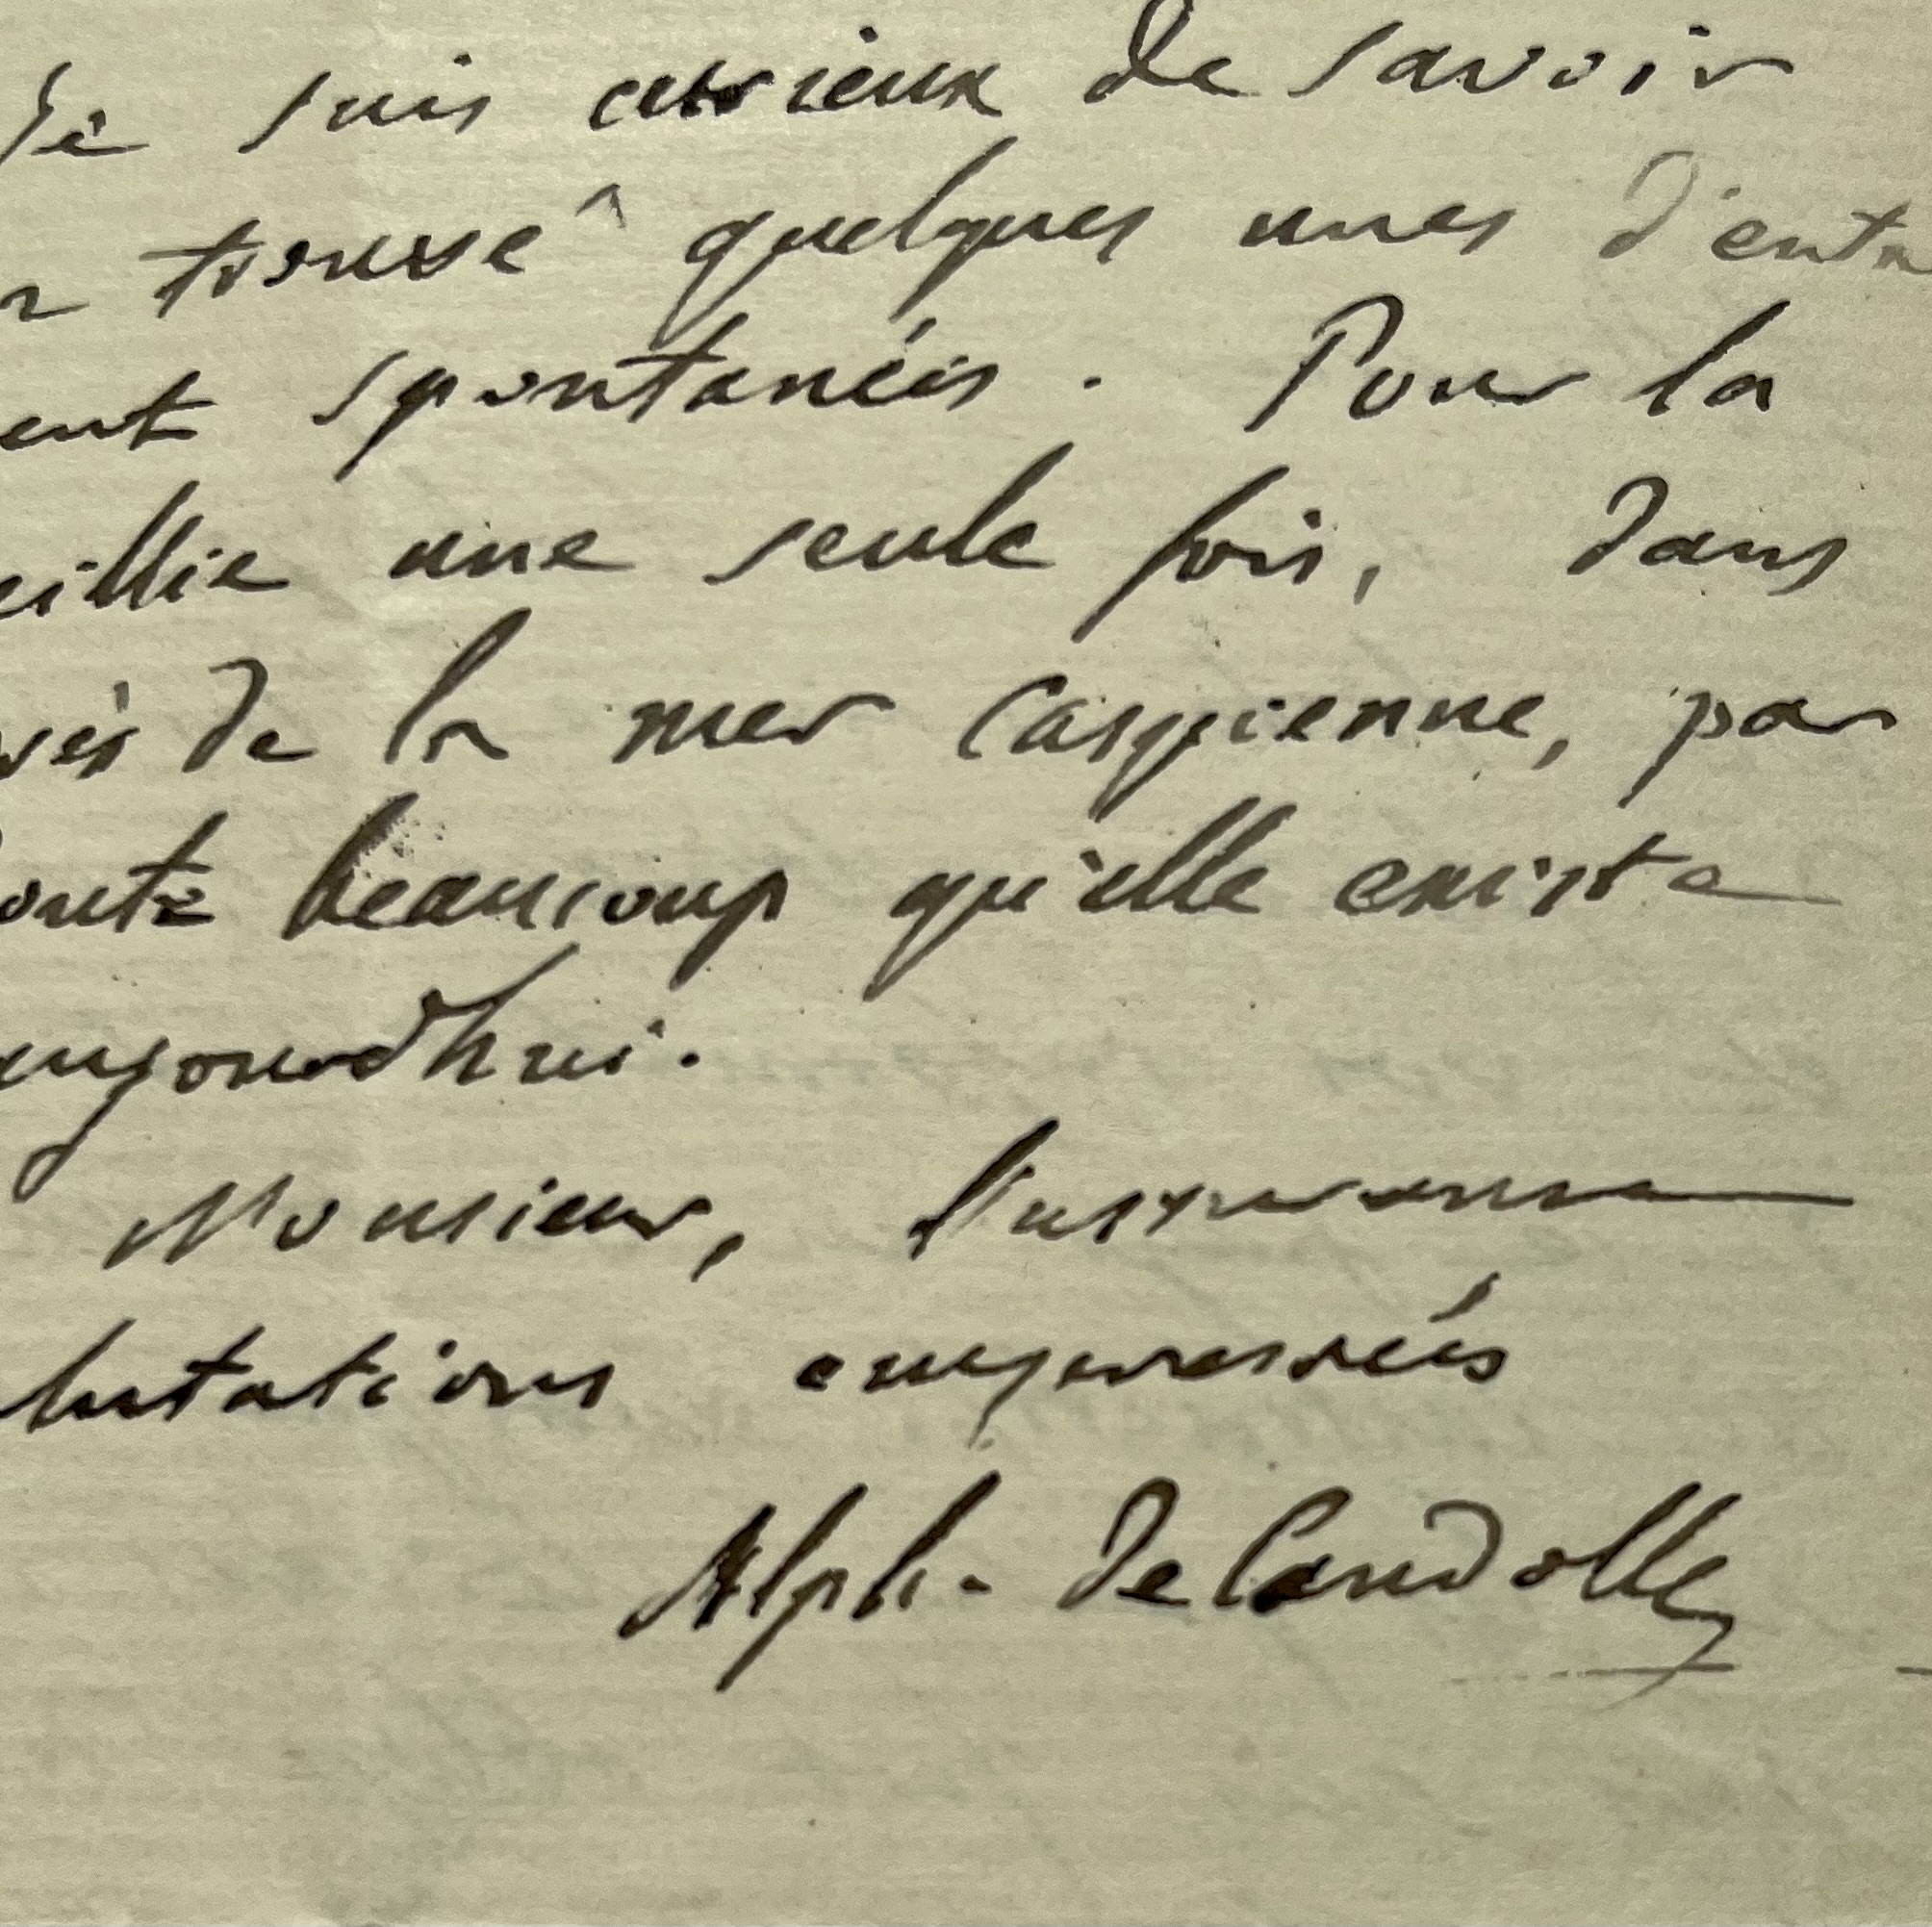 Je suis curieux de savoir
trouvé quelques unes d'entre
ent spontanées. Pour la
eillie une seule fois, dans
de la mer Caspienne, par
oute beaucoup qu'elle existe
aujourdhui.
Monsieur, l'assurance
lutations empressées
Alph. De Candolle